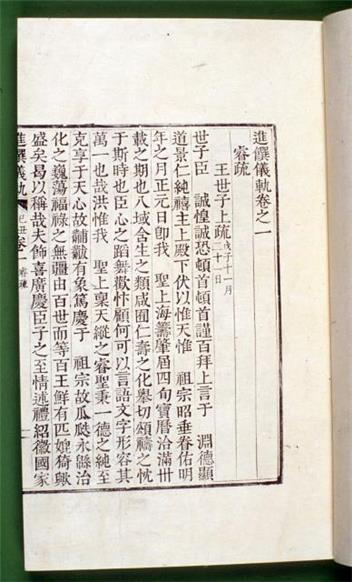 進饌儀軌卷之一
睿疏
王世子上疏 戊子十一月二十一日
世子臣 誠惶誠恐頓首頓首謹百拜上言于 淵德顯
道景仁純禧主上殿下伏以惟天惟 祖宗昭垂眷佑明
年之月正元日卽我 聖上海籌肇屆四旬寶曆洽滿卅
載之期也八域含生之類咸囿仁壽之化擧切頌禱之忱
于斯時也臣心之蹈舞歡忭顧何可以言語文字形容其
萬一也哉洪惟我 聖上稟天縱之睿聖秉一德之純至
克享于天心故黼黻有象篤慶于 祖宗故瓜瓞永緜治
化之巍蕩福祿之無疆由百世而等百王鮮有匹媲猗歟
盛矣曷以稱哉夫飾喜廣慶臣子之至情述禮紹徽國家
進饌儀軌 己丑 卷一 睿疏 一